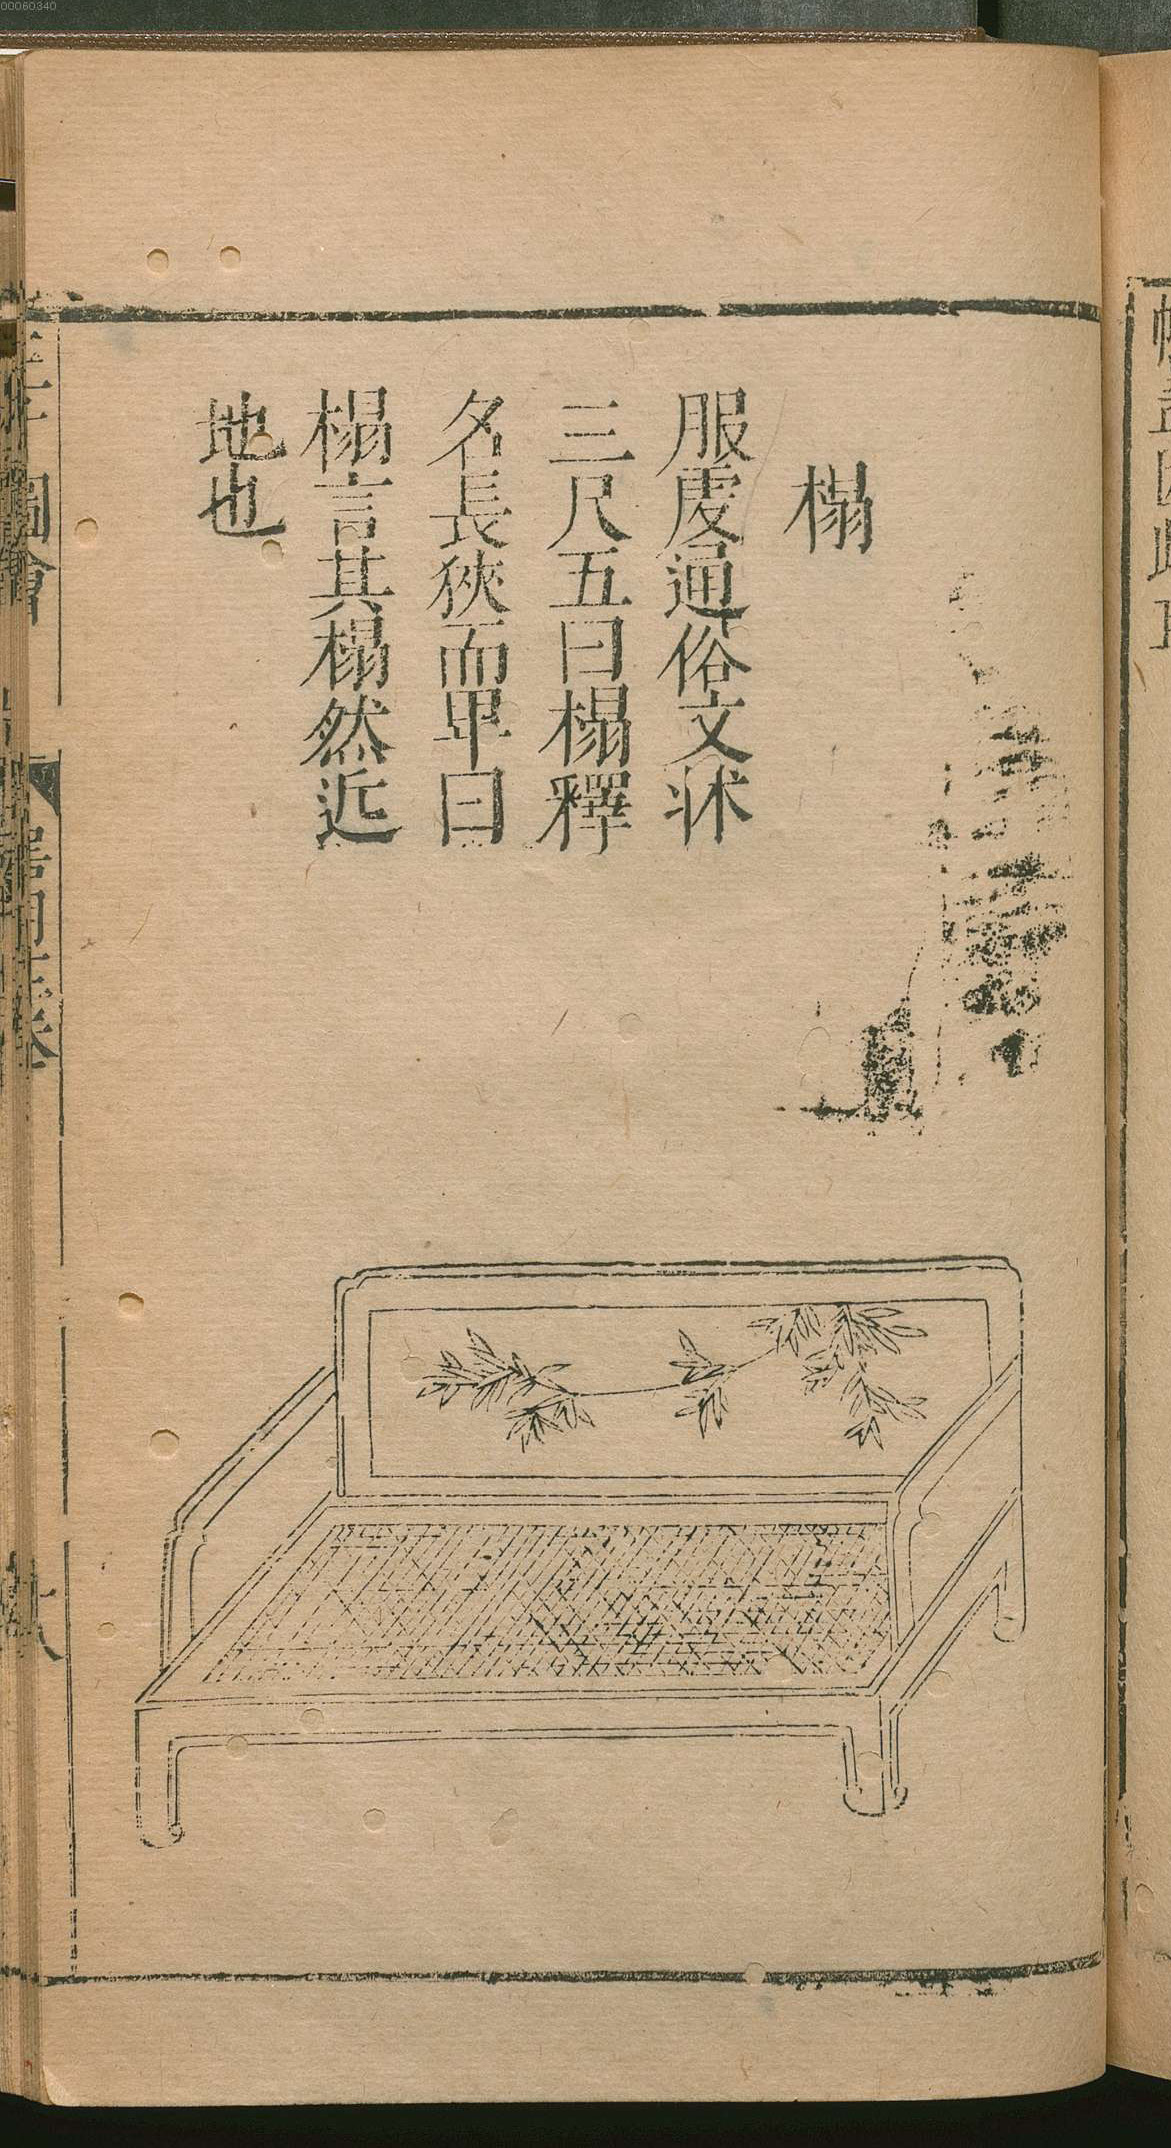 榻
服虔通俗文牀
三尺五曰榻釋
名長狹而卑曰
榻言其榻然近
地也
圖會
00060340